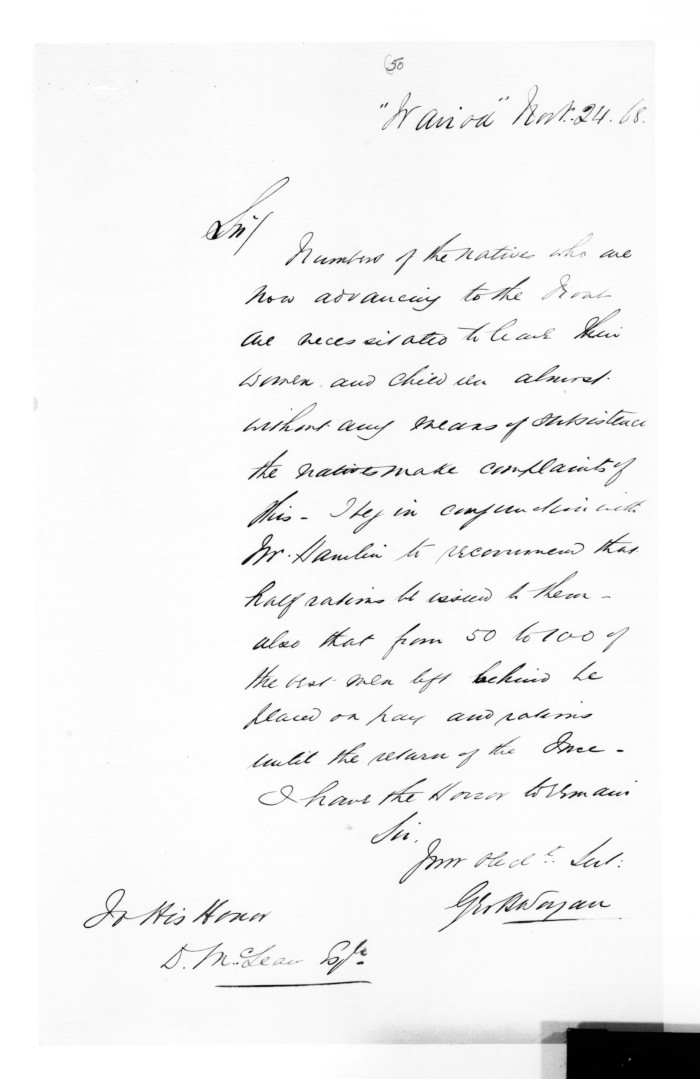 50
"Wairoa" Novr. 24. 68.
Sir/
Numbers of the natives who are
now advancing to the Front
are necessitated to leave their
women and children almost
without any means of subsistence
the natives make complaints of
this - I beg in conjunction with
Mr. Hamlin to recommend that
half rations be issued to them -
also that from 50 to 100 of
the best men left behind be
placed on pay and rations
until the return of the Force -
I have the Honor to remain
Sir.
Your Obedt. Servt:
Geo B Worgan
To His Honor
D. McLean Esqre